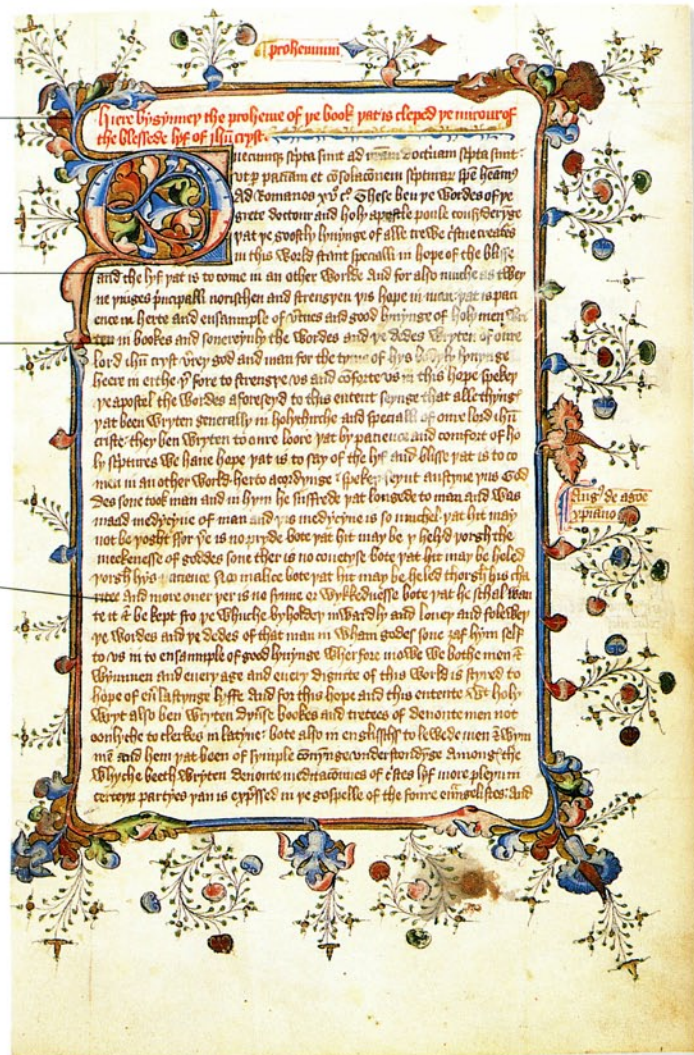 prohemium
Here bygynney the proheme of ye book yat is cleped ye mirour of
the blessede lyf of jhū cryst.
Quecunq; scͥpta sunt ad nr̄am doctͥnam scͥpta sunt:
vt ꝑ pacīam et cōsolacōnem scͥpturaꝝ spē heamꝰ
Ad Romanos xvͦ cͦ. These beu ye wordes of ye
grete doctour and holy apostle poule consyderyge
yat ye goostly lyuynge of alle trewe cͥstne creatēs
in this world stant specialli in hope of the blisse
and the lyf yat is to come in an other worlde And for also muche as twey
ne yinges pͥncipalli norischen and strengyen yis hope in man: yat is paci
ence in herte and ensaumple of vͥtues and good lyuynge of holy men wri
ten in bookes and souereynly the wordes and ye dedes wryten of oure
lord ihū cryst verey god and man for the tyme of hys bodyly lyuynge
heere in erthe yͬ fore to strengye vs and cōforte vs in this hope spekey
ye apostel the wordes aforeseyd to this entent seynge that alle thynges
yat been wryten generally in holychirche and speciall of oure lord ihū
criste: they ben wryten to oure loore yat by patience and comfort of ho
ly scͥptures we haue hope yat is to say of the lyf and blisse yat is to co
men in an other world. herto acordynge spekey seynt austyne yus God
des sone took man and in hym he suffrede yat longede to man and was
maad medycyne of man and yis medycyne is so muchel yat hit may
not be yoght ffor yͬ is no pryde bote yat hit may be y helyd yorgh the
mekenesse of goddes sone ther is no couetyse bote yat hit may be heled
yorgh hys pacience Noo malice bote yat hit may be heled thorgh his cha
ritee and more ouer yer is no synne or wykkednesse bote yat he schal wan
te it & be kept fro ye whuche byholdey inwardly and louey and folewey
ye wordes and ye dedes of that man in wham godes sone yaf hym self
to vs in to ensaumple of good lyuynge wherfore nowe we bothe men &
wymmen and euery age and euery dignite of this world is styred to
hope of eūlastynge lyffe And for this hope and this entente wt holy
wryt also ben wryten dyūse bookes and tretees of deuoute men not
oonlyche to clerkes in latyne: bote also in englissch to lewede men & wym
mē and hem yat been of symple cōnynge vnderstondyge amonge the
whyche beeth wryten deuoute meditacōunes of cͥstes lyf more pleyn in
certeyn partyes yan is expͬssed in ye gospelle of the foure euāngelistes: and
Augꝰ de agōe
xp̄iano